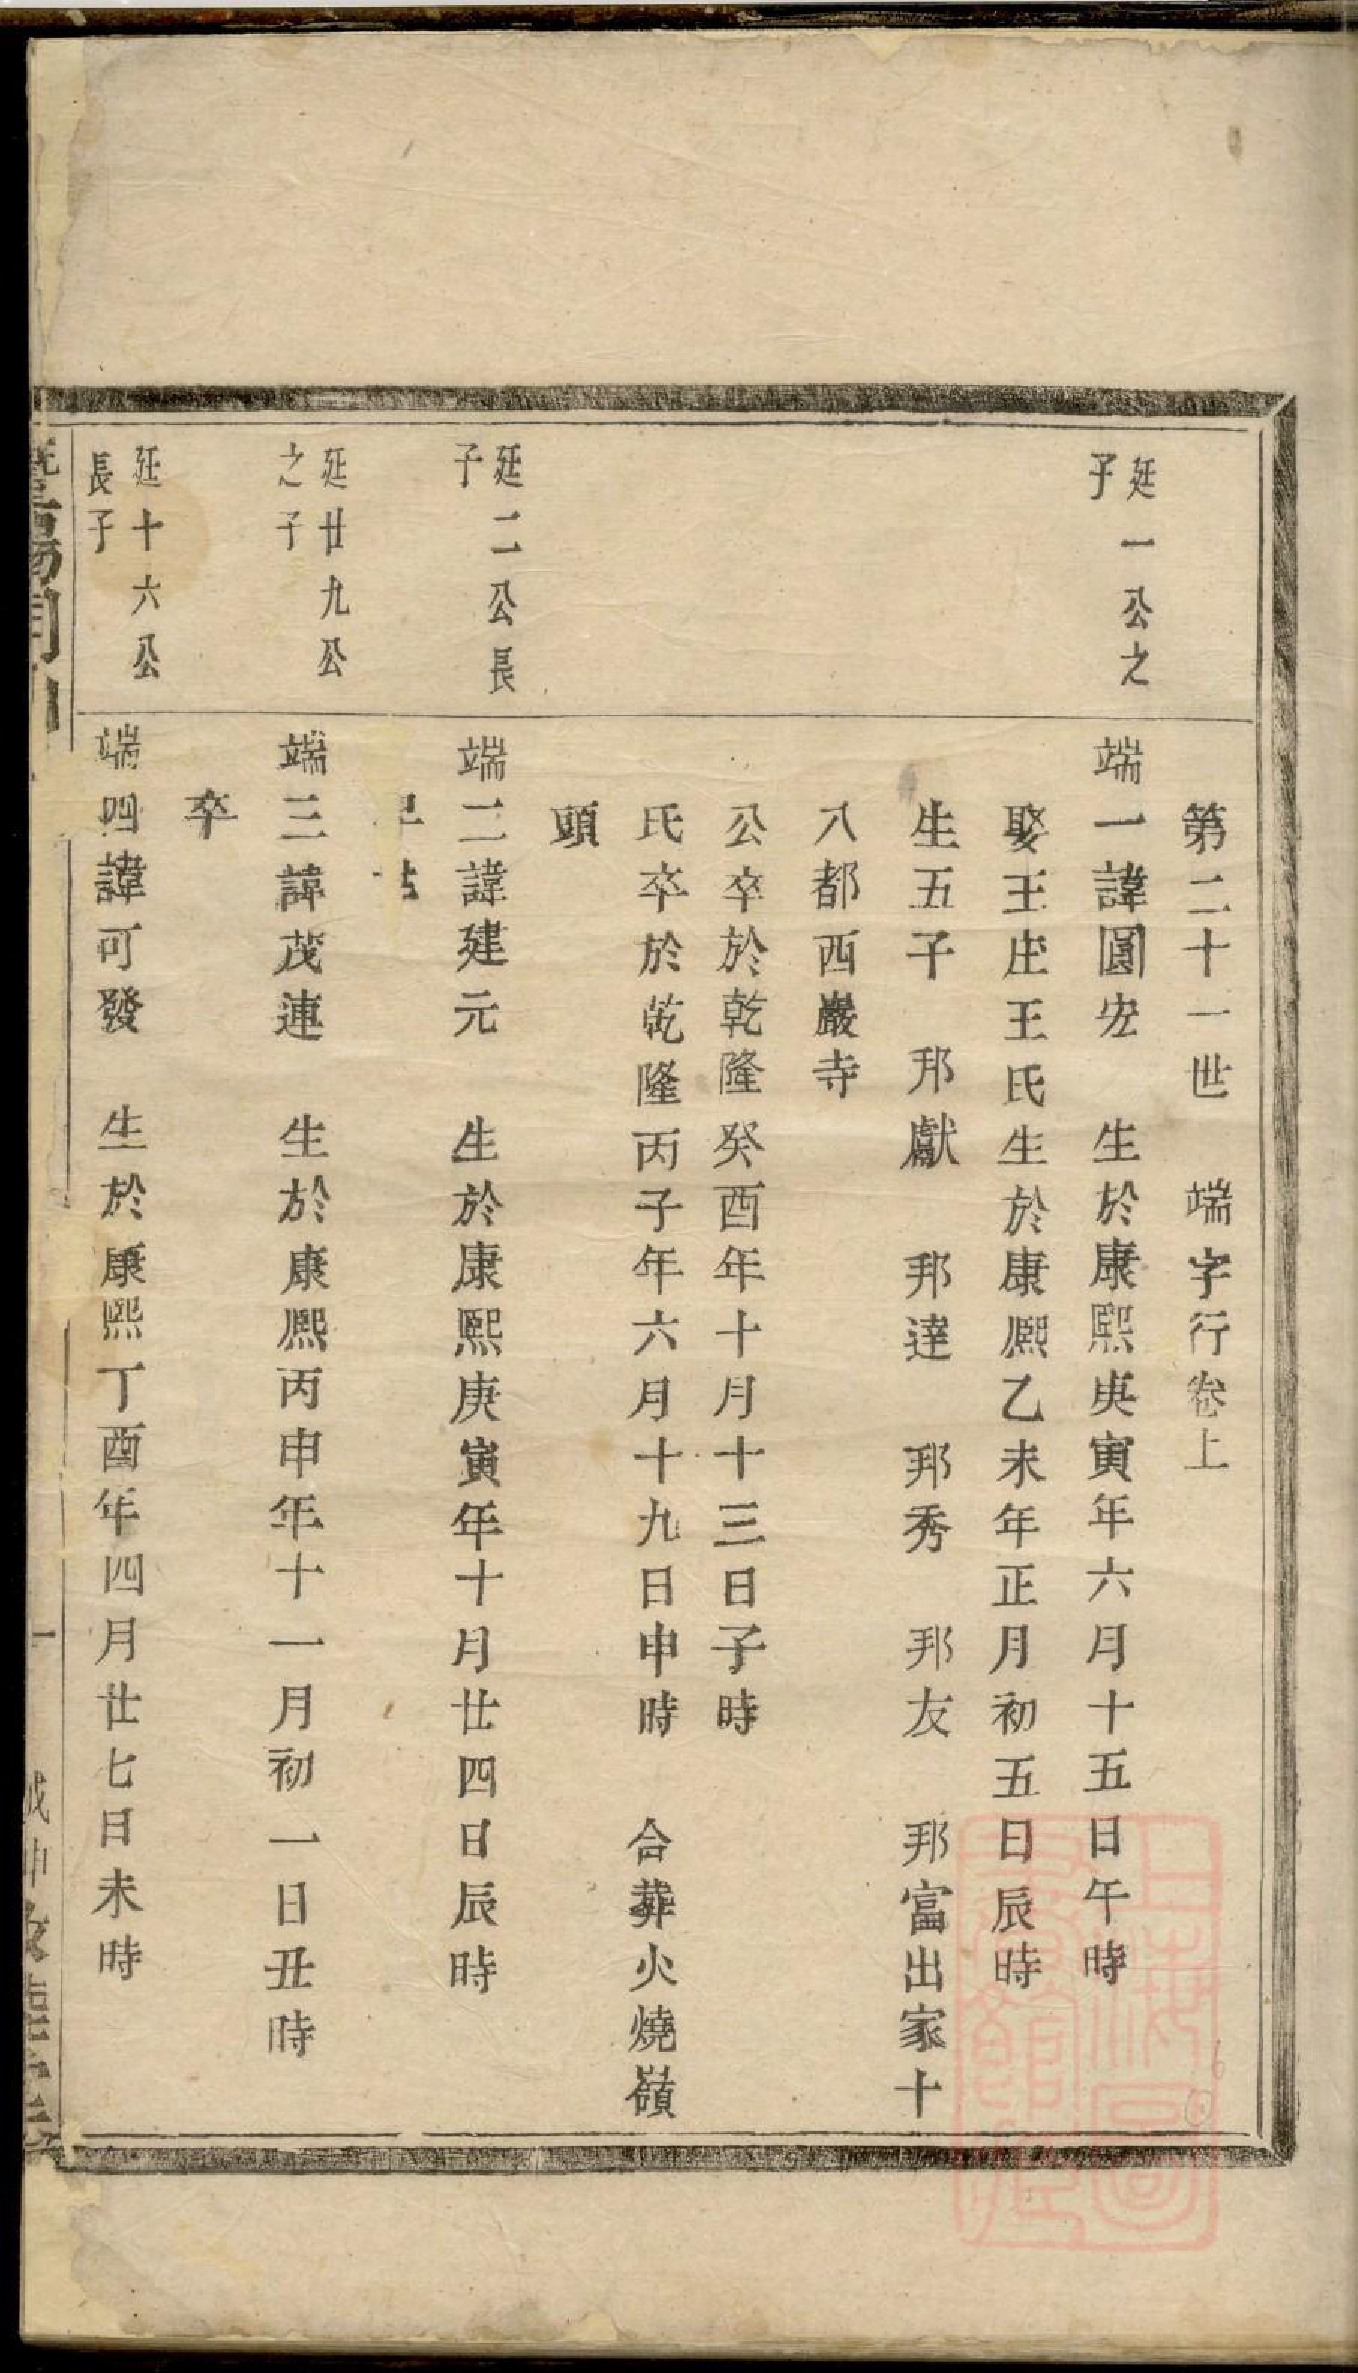 第二十一世　端字行卷上
廷一公之
子
端一諱圓宏　生於康熙庚寅年六月十五日午時
娶王庄王氏生於康熙乙未年正月初五日辰時
生五子　邦獻　邦達　邦秀　邦友　邦富出家十
八都西巖寺
公卒於乾隆癸酉年十月十三日子時
氏卒於乾隆丙子年六月十九日申時　合葬火燒嶺
頭
廷二公長
子
端二諱建元　生於康熙庚寅年十月廿四日辰時
廷廿九公
之子
端三諱茂連　生於康熙丙申年十一月初一日丑時
卒
廷十六公
長子
端四諱可發　生於康熙丁酉年四月廿七日未時
上海圖
書館藏